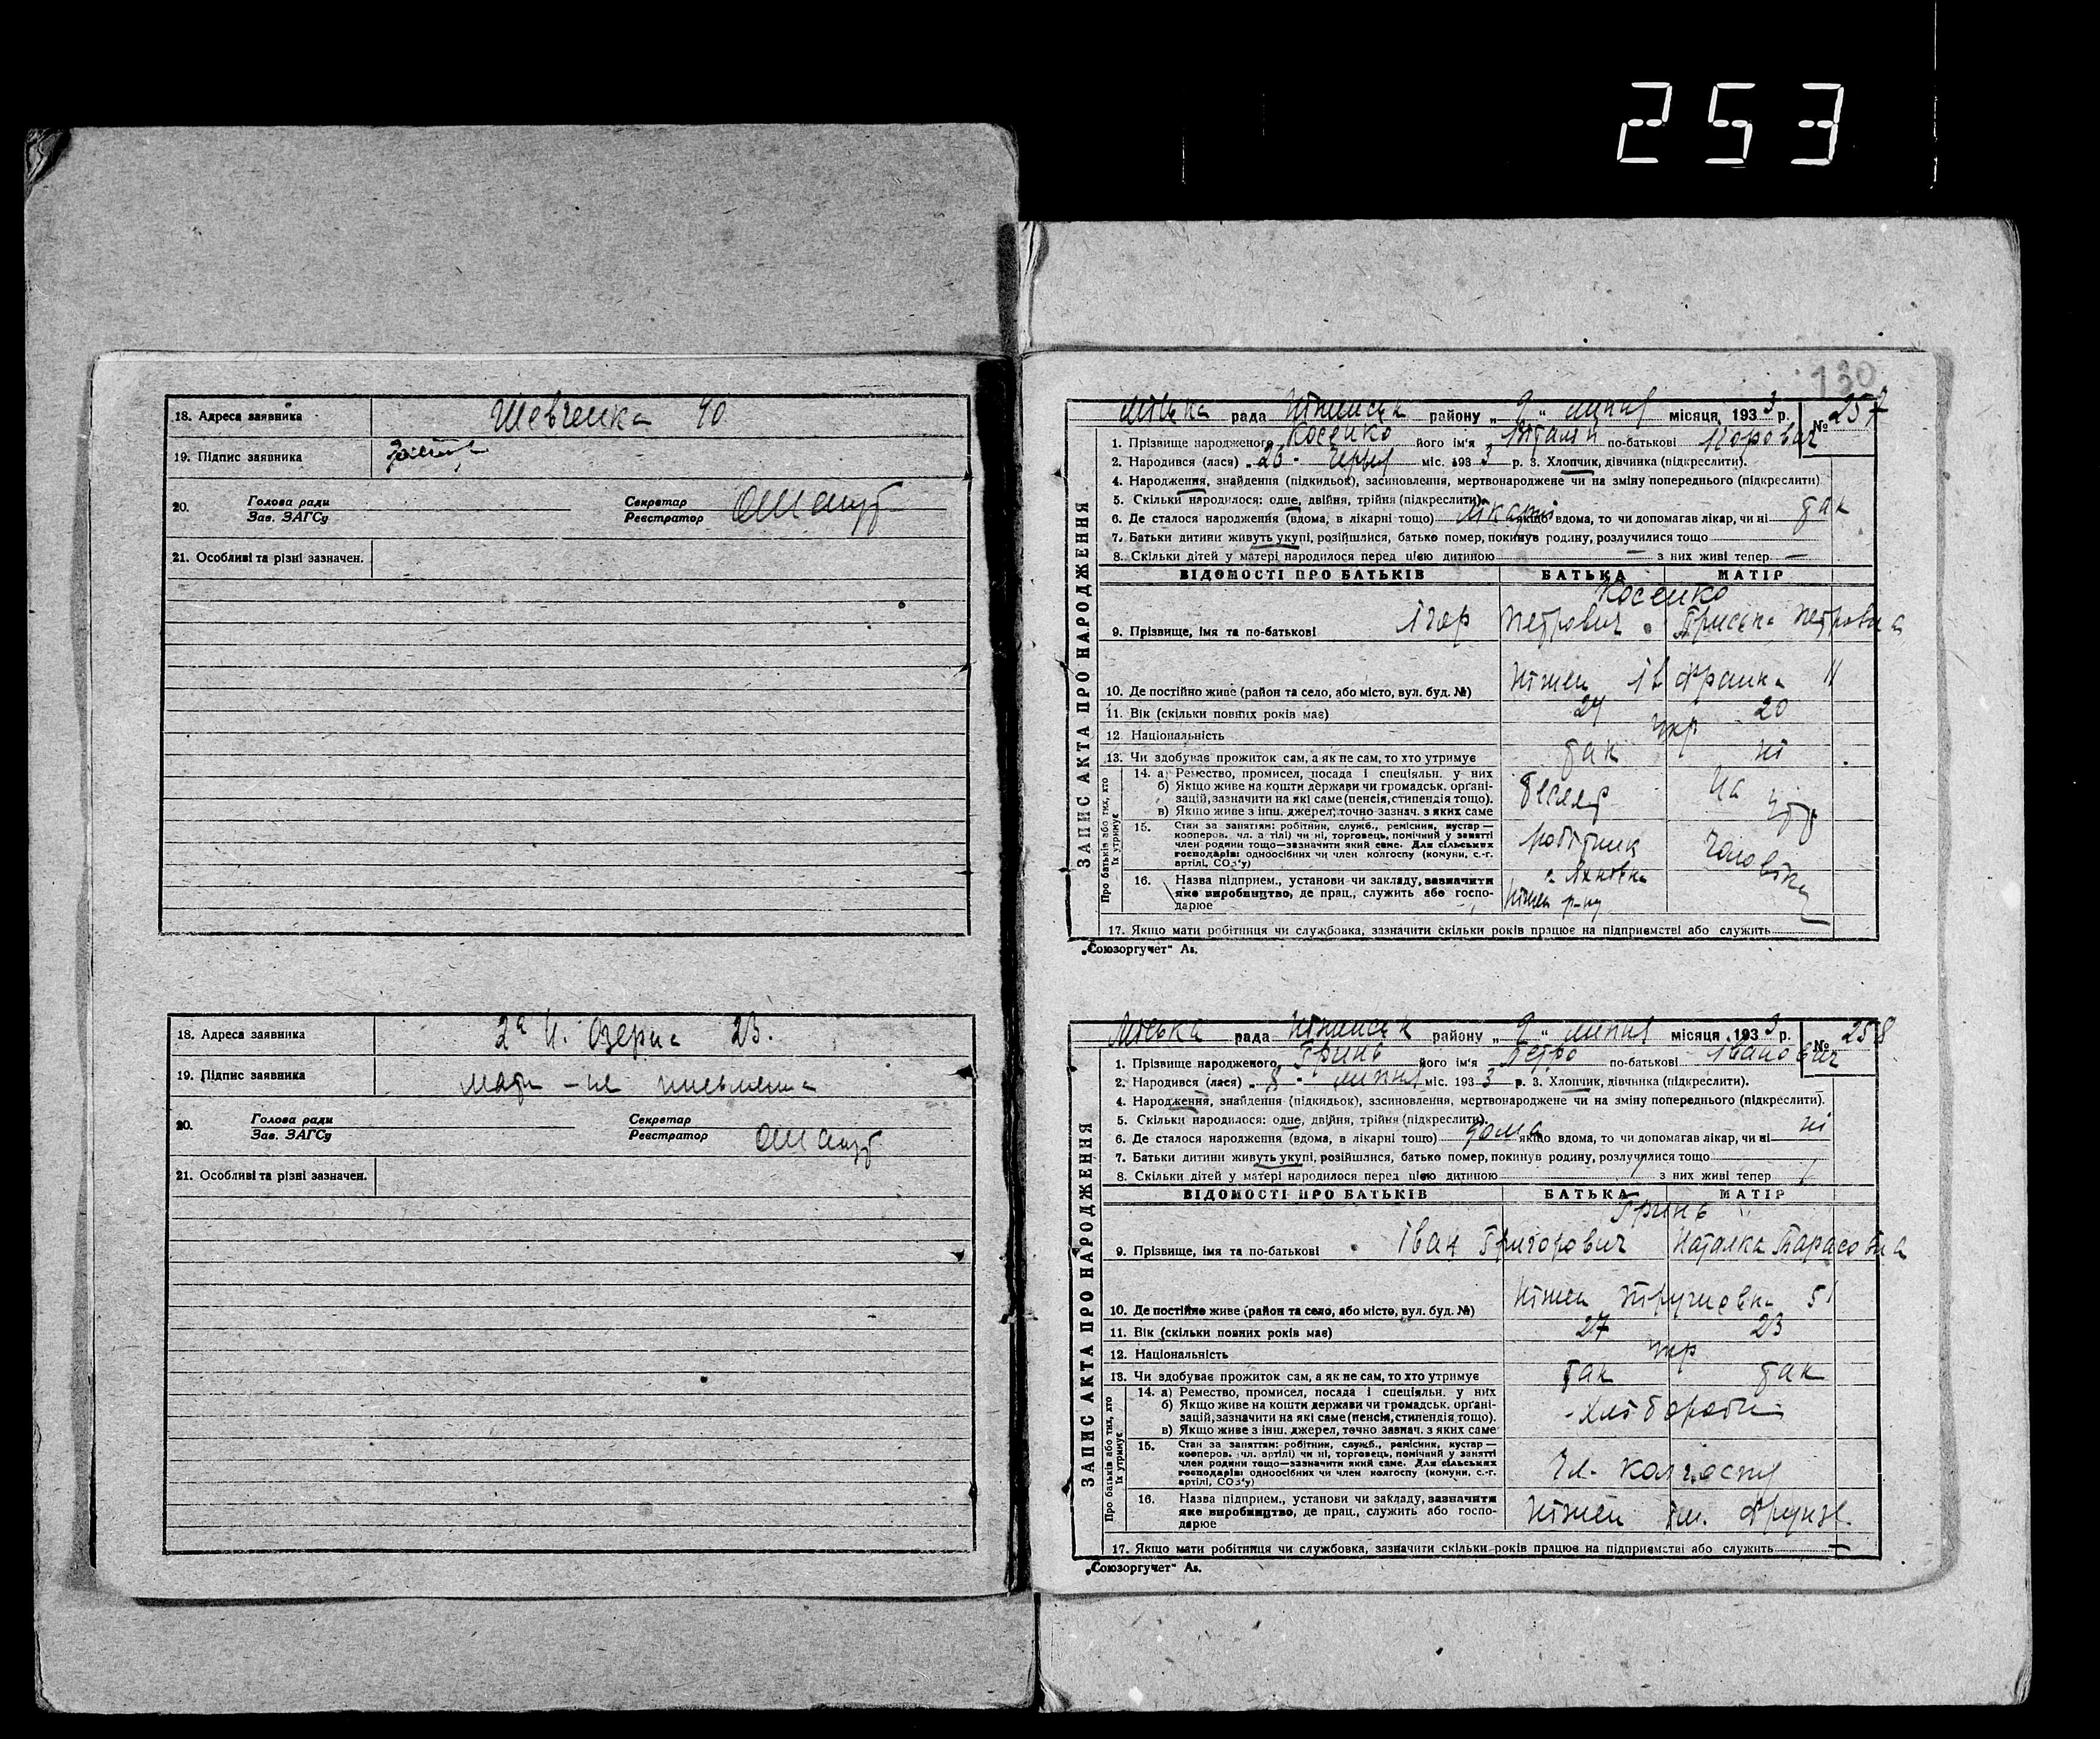 253
18. Адреса заявника Шевченка 40
19. Підпис заявника
20. Голова ради Зав. ЗАГСу Секретар Реєстратор
21. Особливі та різні зазначен.
18. Адреса заявника 2ª Н. Озерна 23.
19. Підпис заявника мати – не письменна
20. Голова ради Зав. ЗАГСу Секретар Реєстратор
21. Особливі та різні зазначен.
130
ЗАПИС АКТА ПРО НАРОДЖЕННЯ
Міська рада Ніжинськ району „ 9 “ липня місяця 1933 р. № 257
1. Прізвище народженого Косенко його ім'я Віталій по-батькові Ігорович
2. Народився (лася) „ 26 " червня міс. 1933 р. 3. Хлопчик, дівчинка (підкреслити).
4. Народження, знайдення (підкидьок), засиновлення, мертвонароджене чи на зміну попереднього (підкреслити)
5. Скільки народилося: одне, двійня, трійня (підкреслити).
6. Де сталося народження (вдома, в лікарні тощо) лікарні якщо вдома, то чи допомагав лікар, чи ні так
7. Батьки дитини живуть укупі, розійшлися, батько помер, покинув родину, розлучилися тощо
8. Скільки дітей у матері народилося перед цією дитиною — з них живі тепер —
ВІДОМОСТІ ПРО БАТЬКІВ БАТЬКА МАТІР
Косенко
9. Прізвище, імя та по-батькові Ігор Петрович Петровна
10. Де постійно живе (район та село, або місто, вул. буд. №) Ніжен Ів Франка 11
11. Вік (скільки повних років має) 24 20
12. Національність Укр
13. Чи здобуває прожиток сам, а як не сам, то хто утримує так ні
Про батьків або тих, хто їх утримує
14. а) Ремество, промисел, посада і спеціяльн. у них
б) Якщо живе на кошти держави чи громадськ. органі-
зацій, зазначити на які саме (пенсія, стипендія тощо).
в) Якщо живе з інш. джерел, точно зазнач. з яких саме
тесляр На утр
15. Стан за заняттям: робітник, служб., ремісник, кустар —
кооперов. чл. артілі) чи ні, торговець, помічний у занятті
член родини тощо—зазначити який саме. Для сільських
господарів: одноосібних чи член колгоспу (комуни, с.-г.
артілі, СОЗ'у)
робітник чоловіка
16. Назва підприєм., установи чи закладу, зазначити
яке виробництво, де прац., служить або госпо-
дарює
Ніжен р-ну
17. Якщо мати робітниця чи службовка, зазначити скільки років працює на підприємстві або служить
„Союзоргучет“ Ав.
ЗАПИС АКТА ПРО НАРОДЖЕННЯ
Міська рада Ніжинськ району „ 9 “ липня місяця 1933 р. № 258
1. Прізвище народженого Гринь його ім'я Петро по-батькові Іванович
2. Народився (лася) „ 8 " липня міс. 1933 р. 3. Хлопчик, дівчинка (підкреслити).
4. Народження, знайдення (підкидьок), засиновлення, мертвонароджене чи на зміну попереднього (підкреслити).
5. Скільки народилося: одне, двійня, трійня (підкреслити).
6. Де сталося народження (вдома, в лікарні тощо) дома якщо вдома, то чи допомагав лікар, чи ні ні
7. Батьки дитини живуть укупі, розійшлися, батько помер, покинув родину, розлучилися тощо
8. Скільки дітей у матері народилося перед цією дитиною 1 з них живі тепер 1
ВІДОМОСТІ ПРО БАТЬКІВ БАТЬКА МАТІР
Гринь
9. Прізвище, імя та по-батькові Іван Григорович Наталка Тарасовна
10. Де постійно живе (район та село, або місто, вул. буд. №) Ніжен 51
11. Вік (скільки повних років має) 27 23
12. Національність Укр
13. Чи здобуває прожиток сам, а як не сам, то хто утримує так так
Про батьків або тих, хто їх утримує
14. а) Ремество, промисел, посада і спеціяльн. у них
б) Якщо живе на кошти держави чи громадськ. органі-
зацій, зазначити на які саме (пенсія, стипендія тощо).
в) Якщо живе з інш. джерел, точно зазнач. з яких саме
Хлібороби
15. Стан за заняттям: робітник, служб., ремісник, кустар —
кооперов. чл. артілі) чи ні, торговець, помічний у занятті
член родини тощо—зазначити який саме. Для сільських
господарів: одноосібних чи член колгоспу (комуни, с.-г.
артілі, СОЗ'у)
Чл. колгоспу
16. Назва підприєм., установи чи закладу, зазначити
яке виробництво, де прац., служить або госпо-
дарює
Ніжен ім. Фрунзе.
17. Якщо мати робітниця чи службовка, зазначити скільки років працює на підприємстві або служить —
„Союзоргучет“ Ав.